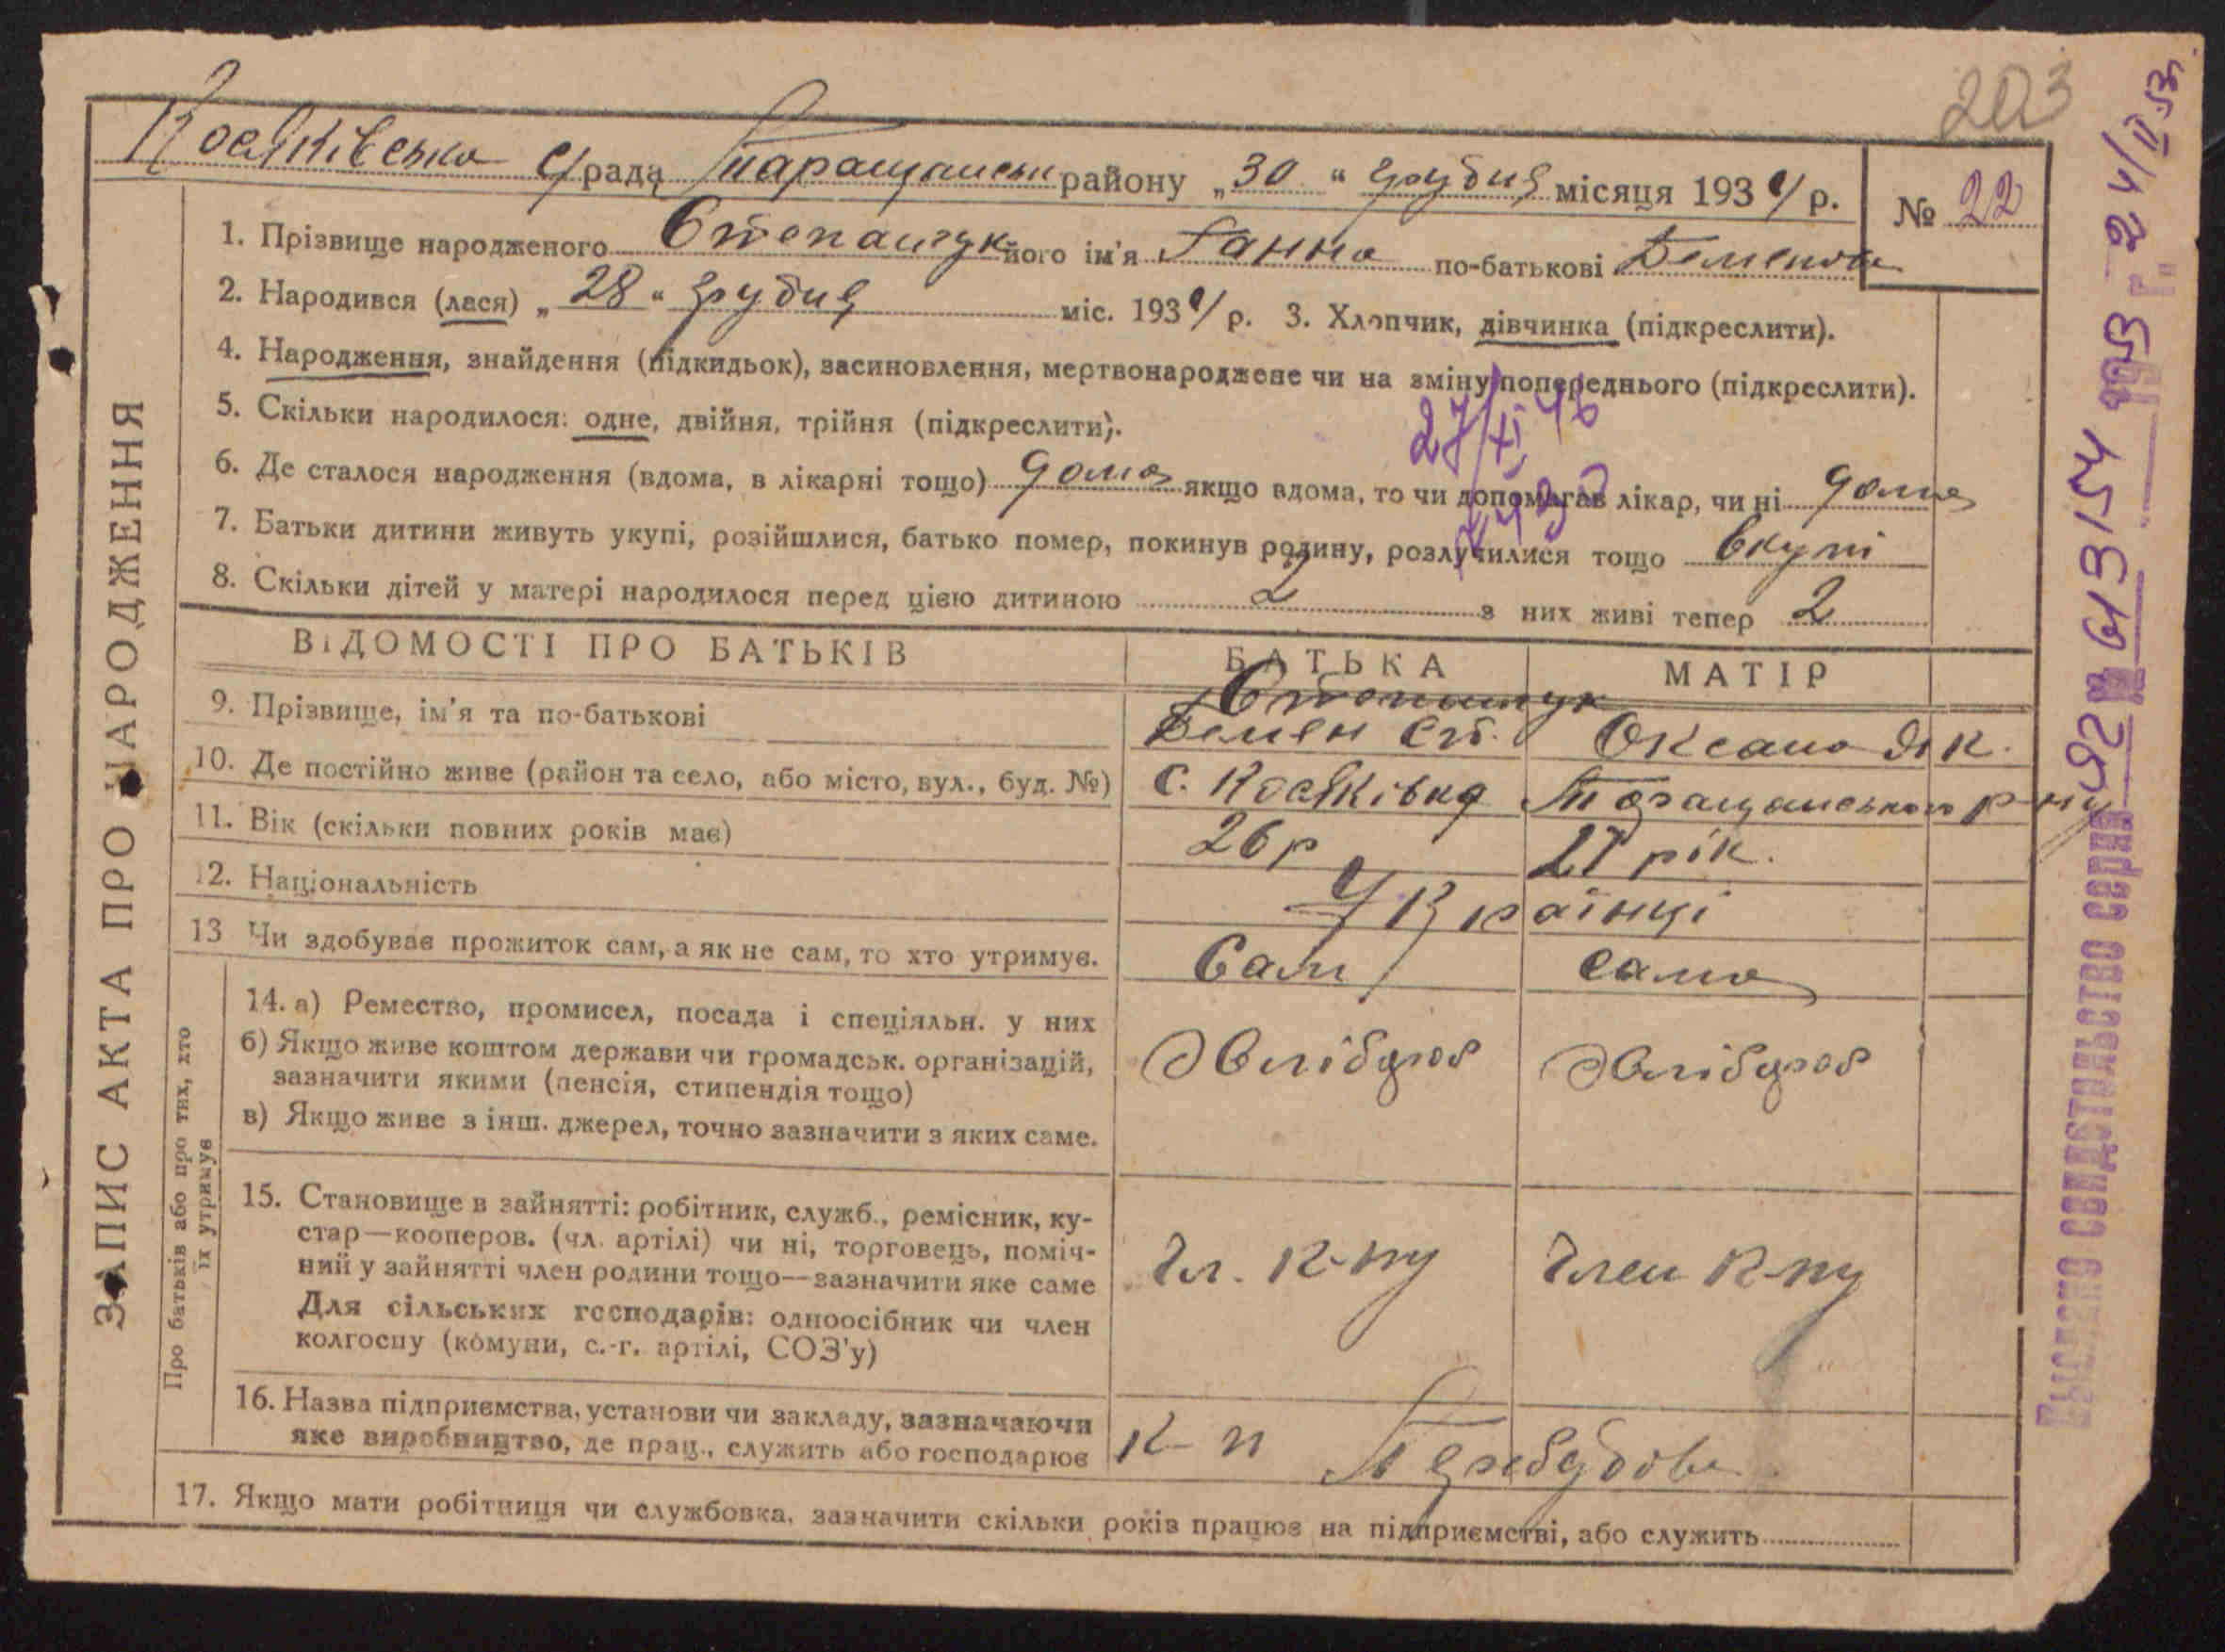 203
Косяківська с/рада Таращанськ району „30“ грудня місяця 1934 р.
№ 22
1. Прізвище народженого Степанчук його ім'я Ганна по-батькові Семенов
2. Народився (лася) „28“ грудня міс. 1934 р. 3. Хлопчик, дівчинка (підкреслити).
4. Народження, знайдення (підкидьок), засиновлення, мертвонароджене чи на зміну попереднього (підкреслити).
5. Скільки народилося: одне, двійня, трійня (підкреслити).
27/XI 46
6. Де сталося народження (вдома, в лікарні тощо) дома якщо вдома, то чи допомагав лікар, чи ні дома
7. Батьки дитини живуть укупі, розійшлися, батько помер, покинув родину, розлучилися тощо вкупі
8. Скільки дітей у матері народилося перед цією дитиною 2 з них живі тепер 2
ВІДОМОСТІ ПРО БАТЬКІВ БАТЬКА МАТІР
9. Прізвище, ім'я та по-батькові Степанчук Семен Ст. Оксана Як.
10. Де постійно живе (район та село, або місто, вул., буд. №) с. Косяківка Таращанського р-ну
11. Вік (скільки повних років має) 26 р 27 рік.
12. Національність Українці
13 Чи здобуває прожиток сам, а як не сам, то хто утримує. Сам сама
14. а) Ремество, промисел, посада і спеціяльн. у них
б) Якщо живе коштом держави чи громадськ. організацій,
зазначити якими (пенсія, стипендія тощо)
в) Якщо живе з інш. джерел, точно зазначити з яких саме.
Хлібороб Хлібороб
15. Становище в зайнятті: робітник, служб., ремісник, ку-
стар—кооперов. (чл. артілі) чи ні, торговець, поміч-
ний у зайнятті член родини тощо—зазначити яке саме
Для сільських господарів: одноосібник чи член
колгоспу (комуни, с.-г. артілі, СОЗ'у)
Чл. К-пу Член К-пу
16. Назва підприємства, установи чи закладу, зазначаючи
яке виробництво, де прац., служить або господарює
К-п Перебудова
17. Якщо мати робітниця чи службовка, зазначити скільки років працює на підприємстві, або служить
ЗАПИС АКТА ПРО НАРОДЖЕННЯ
Про батьків або про тих, хто
їх утримує
Выдано свидетельство серия ЯЗ № 613154 1953 г. 24/II 53г.